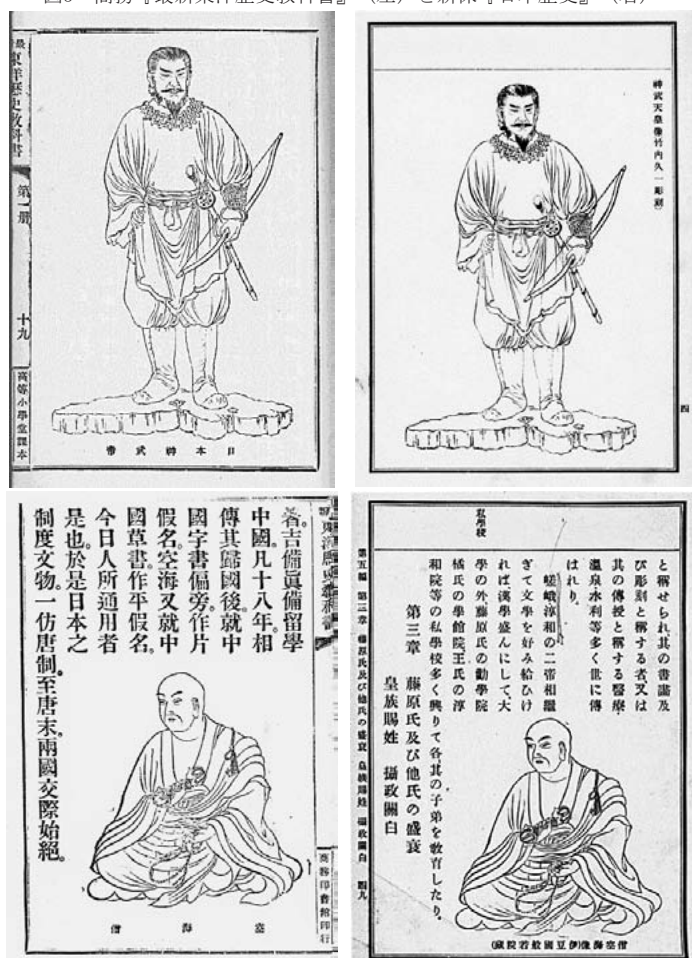 商務『最新東洋歴史教科書』（左）と新保『日本歴史』（右）
東洋歷史教科書
第一册
十九
高等小學堂課本
日本神武帝
神武天皇像(竹內久一彫刻)
四
著。吉備眞備留學
中國。凡十八年。相
傳其歸國後。就中
國字書偏旁。作片
假名。空海又就中
國草書。作平假名。
今日人所通用者
是也。於是日本之
制度文物。一仿唐制。至唐末。兩國交際始絕。
空海僧
商務印書館印行
私學校
と稱せられ、其の書論及
び彫刻と稱する者、又は
其の傳授と稱する醫療
溫泉水利等多く世に傳
はれり。
嵯峨淳和の二帝相繼
ぎて文學を好み給ひけ
れば漢學盛んにして、大
學の外藤原氏の勸學院
橘氏の學館院、王氏の淳
和院等の私學校多く興りて各、其の子弟を敎育したり。
第三章 藤原氏及び他氏の盛衰
皇族賜姓 攝政關白
第五編 第三章 藤原氏及び他氏の盛衰 皇族賜姓 攝政關白 四九
僧空海像(伊豆國般若院藏)